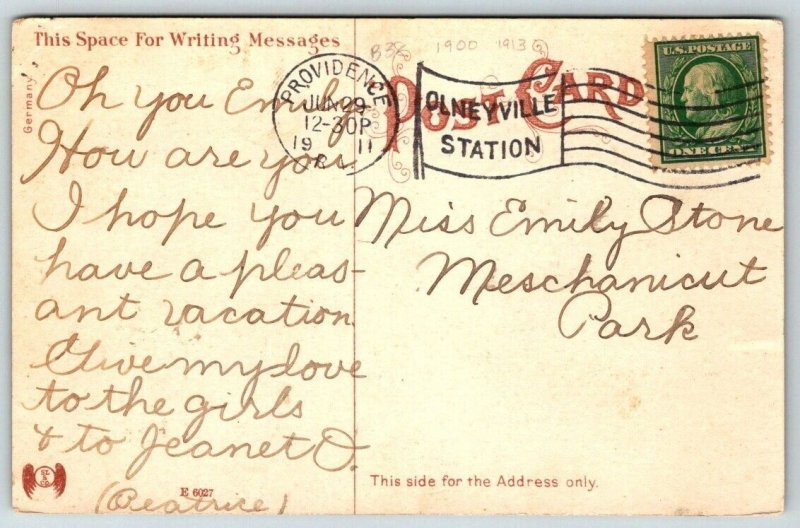 This Space For Writing Messages
1900 1913
POST CARD
Germany
PROVIDENCE
JUN 29
12-30P
19 11
R.I.
OLNEYVILLE
STATION
U.S. POSTAGE
ONE CENT
Oh you Emily
How are you
I hope you
have a pleas-
ant vacation.
Give my love
to the girls
& to Jeanet O.
(Beatrice)
Miss Emily Stone
Meschanicut
Park
E 6027
This side for the Address only.